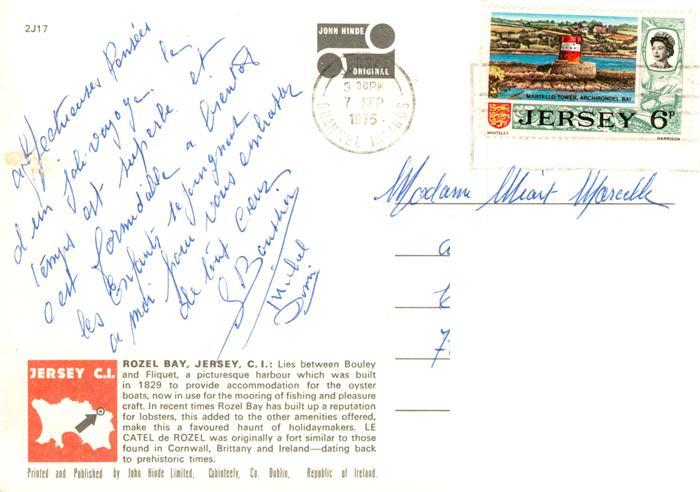 2J17
affectueuses Pensées
d'un joli voyage. le
Temps est superbe et
c'est formidable a bientôt
les Enfants se joingnent
a moi pour vous embrasser
de tout cœur
Michel
JOHN HINDE
ORIGINAL
3 30PM
7 SEP
1975
CHANNEL ISLANDS
MARTELLO TOWER, ARCHIRONDEL BAY
JERSEY 6P
WHITELEY
HARRISON
Madame Miart Marcelle
JERSEY C.I.
ROZEL BAY, JERSEY, C.I.: Lies between Bouley
and Fliquet, a picturesque harbour which was built
in 1829 to provide accommodation for the oyster
boats, now in use for the mooring of fishing and pleasure
craft. In recent times Rozel Bay has built up a reputation
for lobsters, this added to the other amenities offered,
make this a favoured haunt of holidaymakers. LE
CATEL de ROZEL was originally a fort similar to those
found in Cornwall, Brittany and Ireland—dating back
to prehistoric times.
Printed and Published by John Hinde Limited, Cabinteely, Co. Dublin, Republic of Ireland.